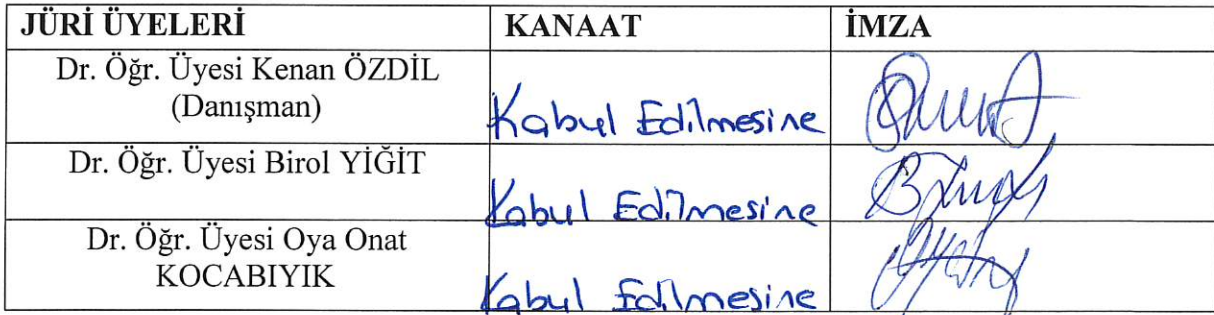 JÜRİ ÜYELERİ KANAAT İMZA
Dr. Öğr. Üyesi Kenan ÖZDİL
(Danışman)
Kabul Edilmesine
Dr. Öğr. Üyesi Birol YİĞİT
Kabul Edilmesine
Dr. Öğr. Üyesi Oya Onat
KOCABIYIK
Kabul Edilmesine